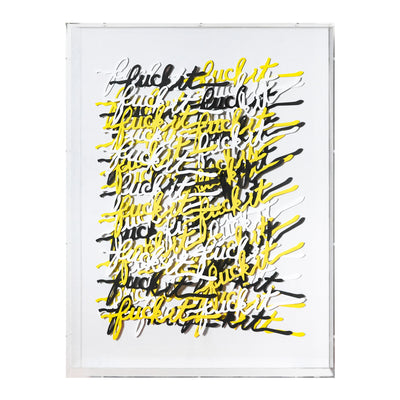 fuck it fuck it
fuck it fuck it
fuck it fuck it
fuck it fuck it
fuck it fuck it
fuck it
fuck it fuck it
fuck it fuck it
fuck it
fuck it fuck it
fuck it fuck it
fuck it fuck it